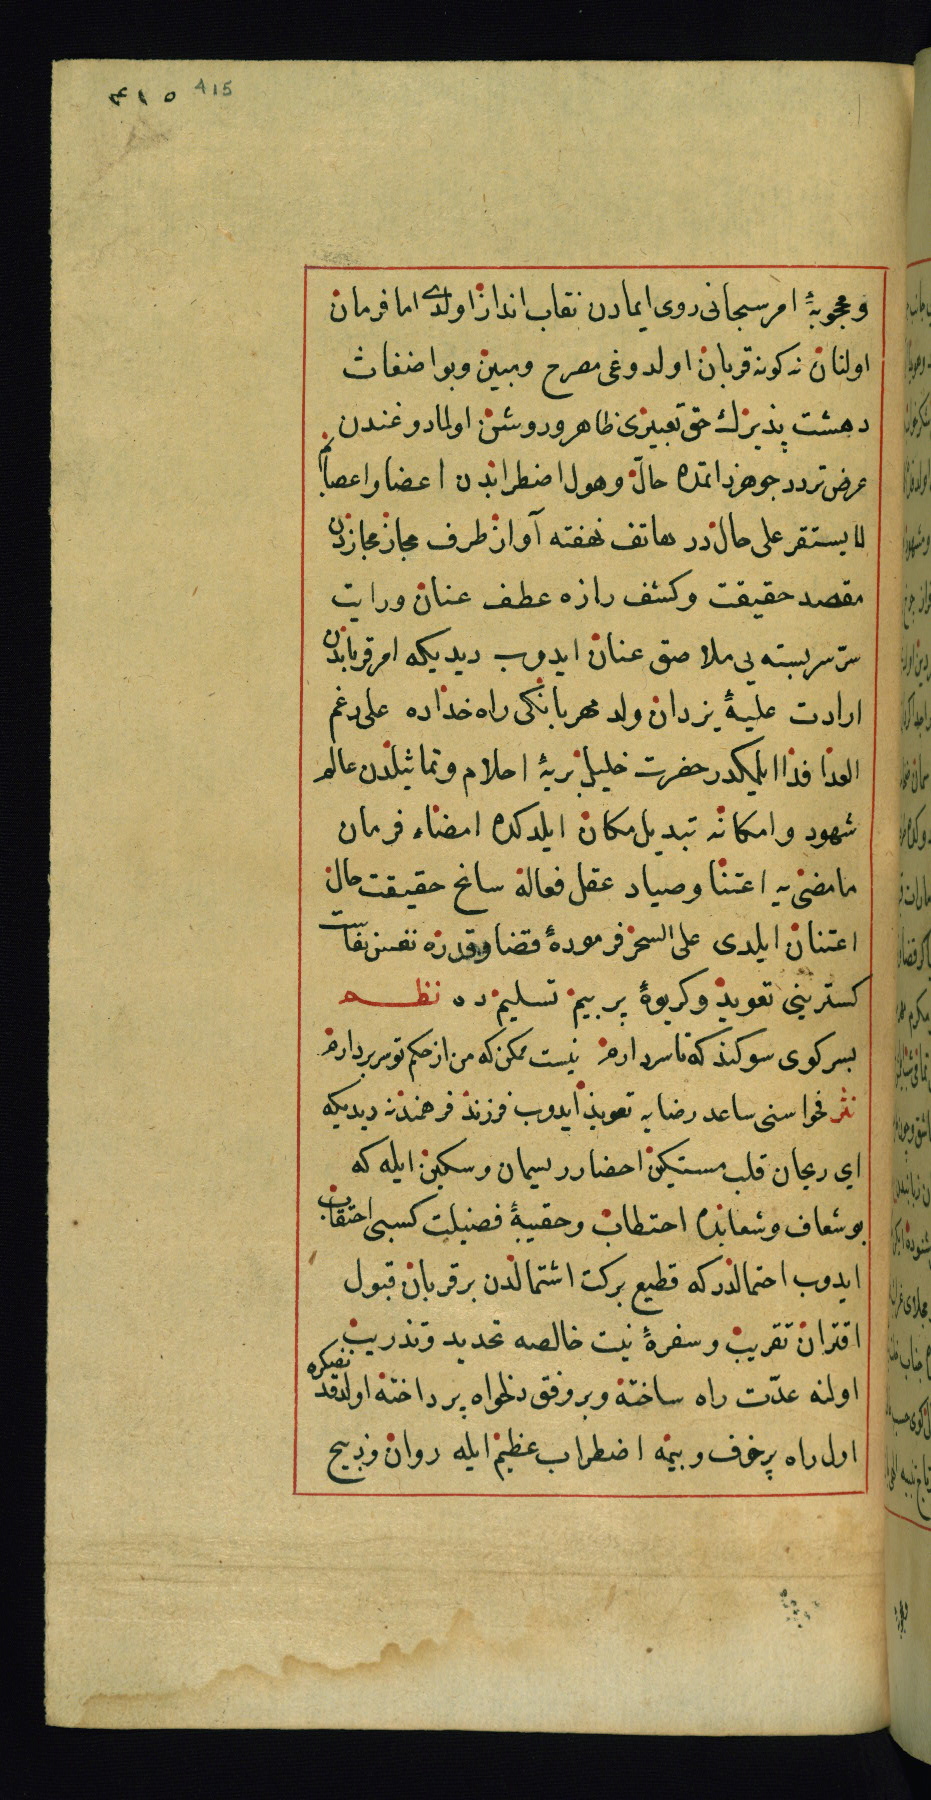 ٤١٥ 415
ومحجوبۀ امر سبحانی روی ایمادن نقاب انداز اولدی اما فرمان
اولنان نه کونه قربان اولدوغی مصرح ومبین وبو اضغاث
دهشت پذیرك حق تعبیری ظاهر وروشن اولمادوغندن
عرض تردد جوهر ذاتمده حال وهول اضطرابدن اعضا واعصابم
لا یستقر علی حال در هاتف نهفته آواز طرف مجاز مجازدن
مقصد حقیقت وکشف رازه عطف عنان ورایت
سر سربسته یی ملاصق عنان ایدوب دیدیکه امر قرباندن
ارادت علیۀ یزدان ولد مهربانکی راه خداده علی رغم
العدا فدا ایلمکدر حضرت خلیل بریۀ احلام وتماثیلدن عالم
شهود وامکانه تبدیل مکان ایلدکده امضاء فرمان
مامضی یه اعتنا وصیاد عقل فعاله سانح حقیقت حال
اعتنان ایلدی علی السحر فرمودۀ قضا وقدرده نفس نفاست
کسترینی تعوید وکریوۀ پر بیم تسلیمده نظم
بسر کوی سوکند که تا سر دارم نیست ممکن که من از حکم تو سر بردارم
نثر فحواسنی ساعد رضایه تعویذ ایدوب فرزند فرهمندنه دیدیکه
ای ریحان قلب مستکین احضار ریسمان وسکین ایله که
بو شعاف وشعابده احتطاب وحقیبۀ فضیلت کسبی احتقاب
ایدوب احتمالدرکه قطیع برکت اشتمالدن بر قربان قبول
اقتران تقریب وسفرۀ نیت خالصه تحدید وتدریب
اولنه عدّت راه ساخته وبر وفق دلخواه پرداخته اولدقدنصکره
اول راه پر خوف وبیمه اضطراب عظیم ایله روان وذبیح